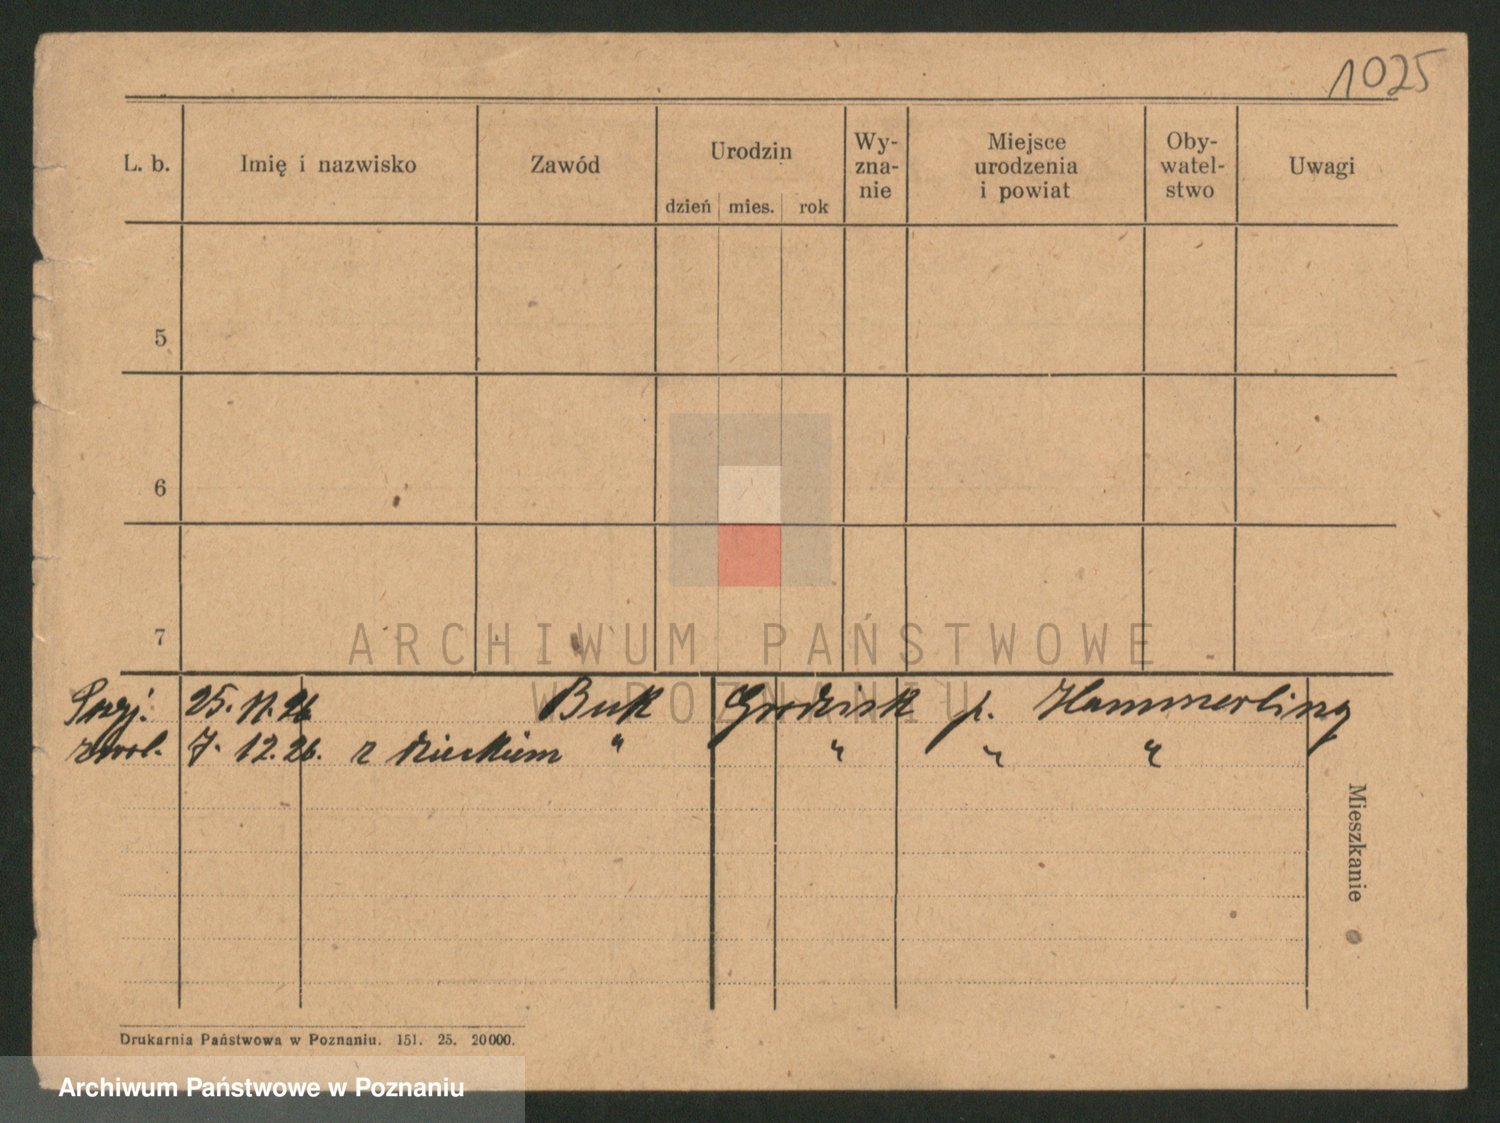 1025
L. b. Imię i nazwisko Zawód Urodzin Wy-zna-nie Miejsce urodzenia i powiat Oby-watel-stwo Uwagi
dzień mies. rok
5
6
7
ARCHIWUM PAŃSTWOWE
W POZNANIU
25. 11. 26 Buk Grodzisk p. Hammerling
zwol. 7. 12. 26. z dzieckiem " " " "
Mieszkanie
Drukarnia Państwowa w Poznaniu. 151. 25. 20000.
Archiwum Państwowe w Poznaniu